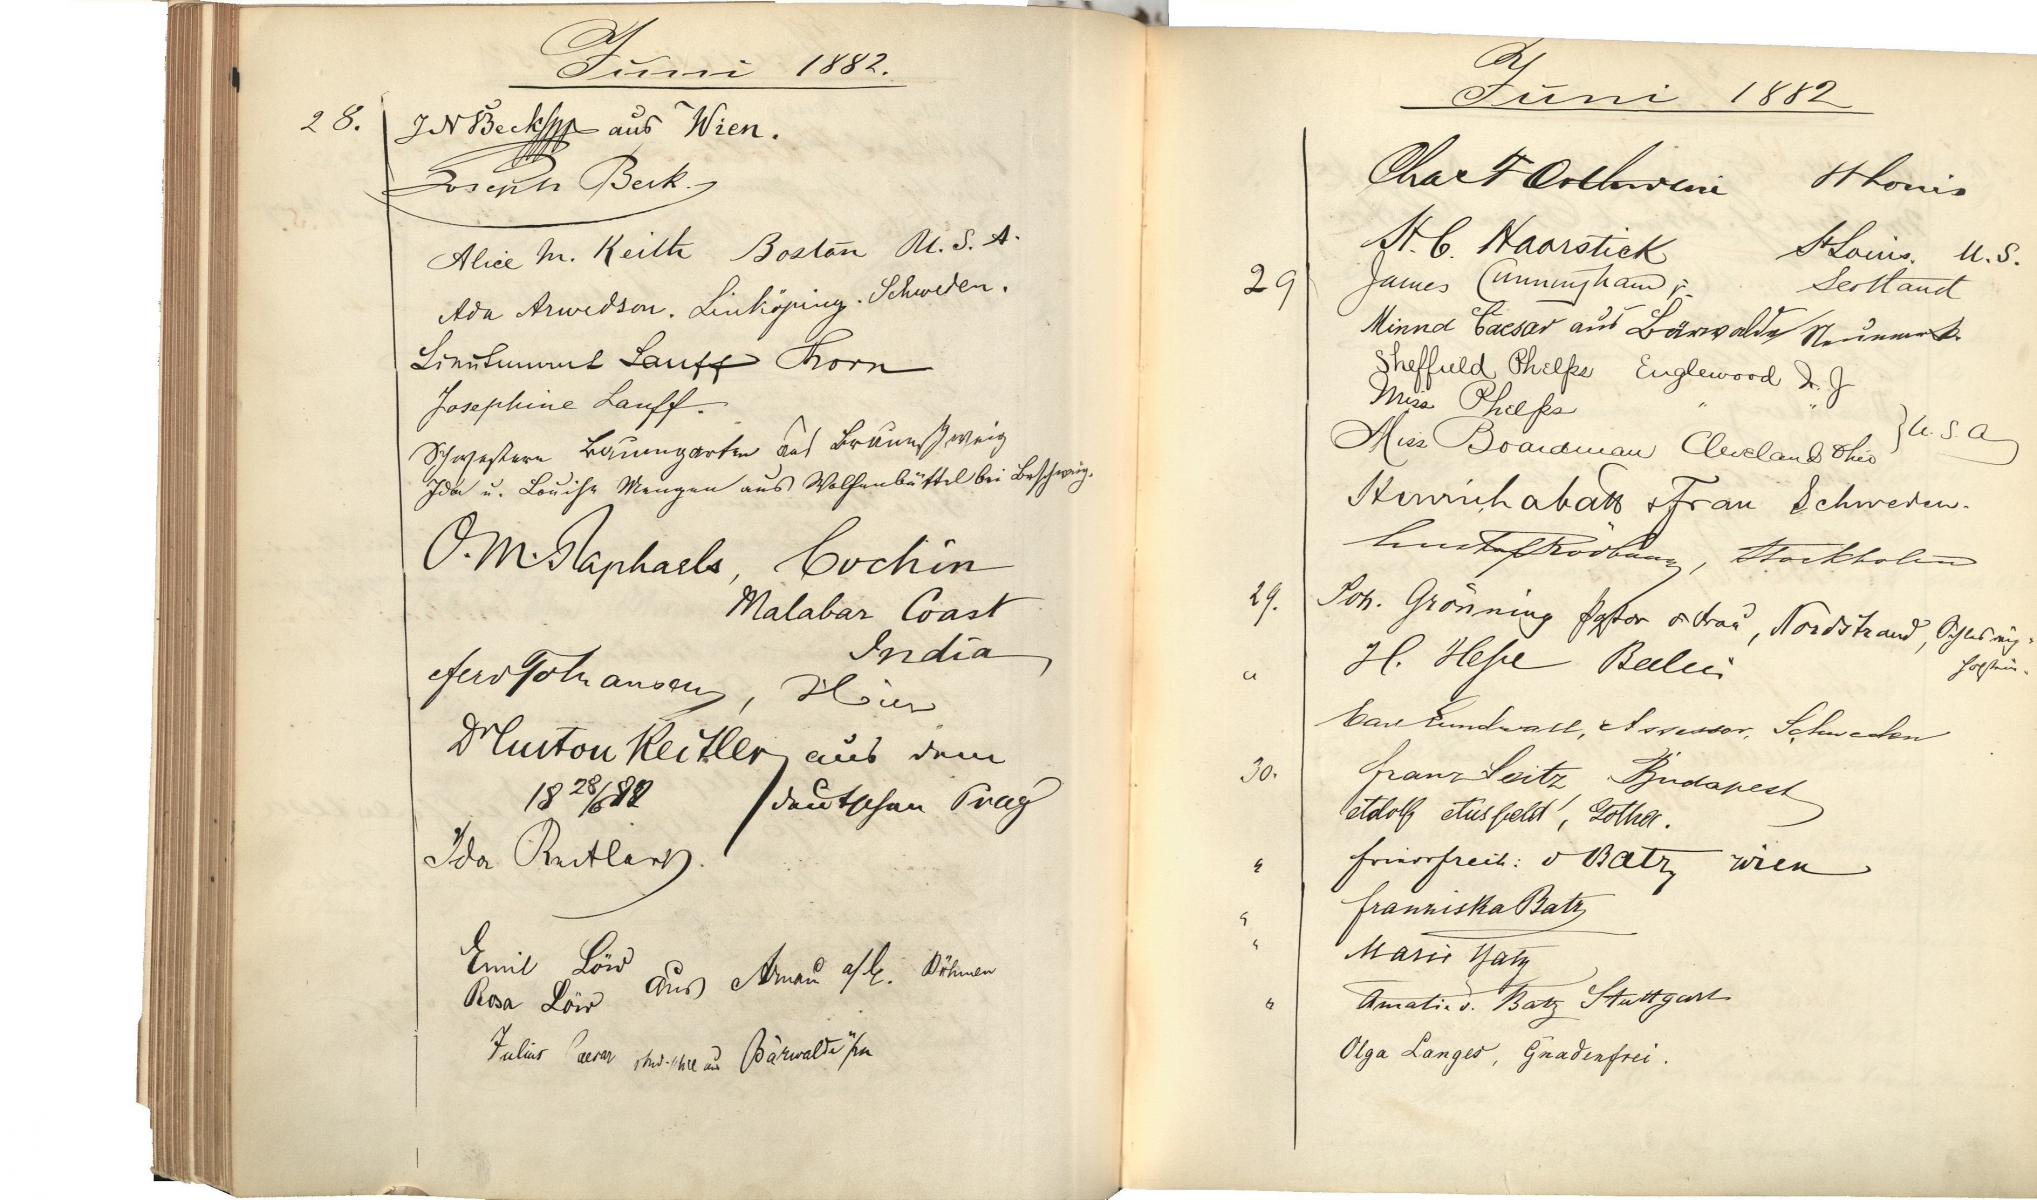 Juni 1882.
28.
J N Beck aus Wien.
Joseph Beck.
Alice M. Keith Boston U. S. A.
Ada Arwedson. Linköping. Schweden.
Lieutenant Lauff Thorn
Josephine Lauff.
Schwestern Baumgarten aus Braunschweig
Ida u. Louise Mengen aus Wolfenbüttel bei Bschweig.
O. M. Raphaels, Cochin
Malabar Coast
India
Johansen, Hier
Dr Reitler aus dem
18 28/6 82 deutschen Prag
Ida Reitler.
Emil Löw
Rosa Löw aus Arnau a/E. Böhmen
Julius Caesar aus Bärwalde i/m
Juni 1882
Chas F St Louis
H. C. Haarstick St Louis. U. S.
29 James Cunningham jr. Scotland
Minna Caesar aus Bärwalde Neumark.
Sheffield Phelps Englewood N. J
Miss Phelps " "
Miss Boardman Cleveland Ohio } U. S. A
& Frau Schweden.
Gustaf, Stockholm
29. Joh. Grönning Pastor & Frau, Nordstrand, Schleswig-
Holstein.
" H. Hesse Berlin
Carl Lundwall, Assessor, Schweden
30. Franz Seitz, Budapest
Adolf Ausfeld, Gotha.
" v Batz Wien
" Franziska Batz
" Marie Batz
" Amalie v. Batz Stuttgart
Olga Langer, Gnadenfrei.